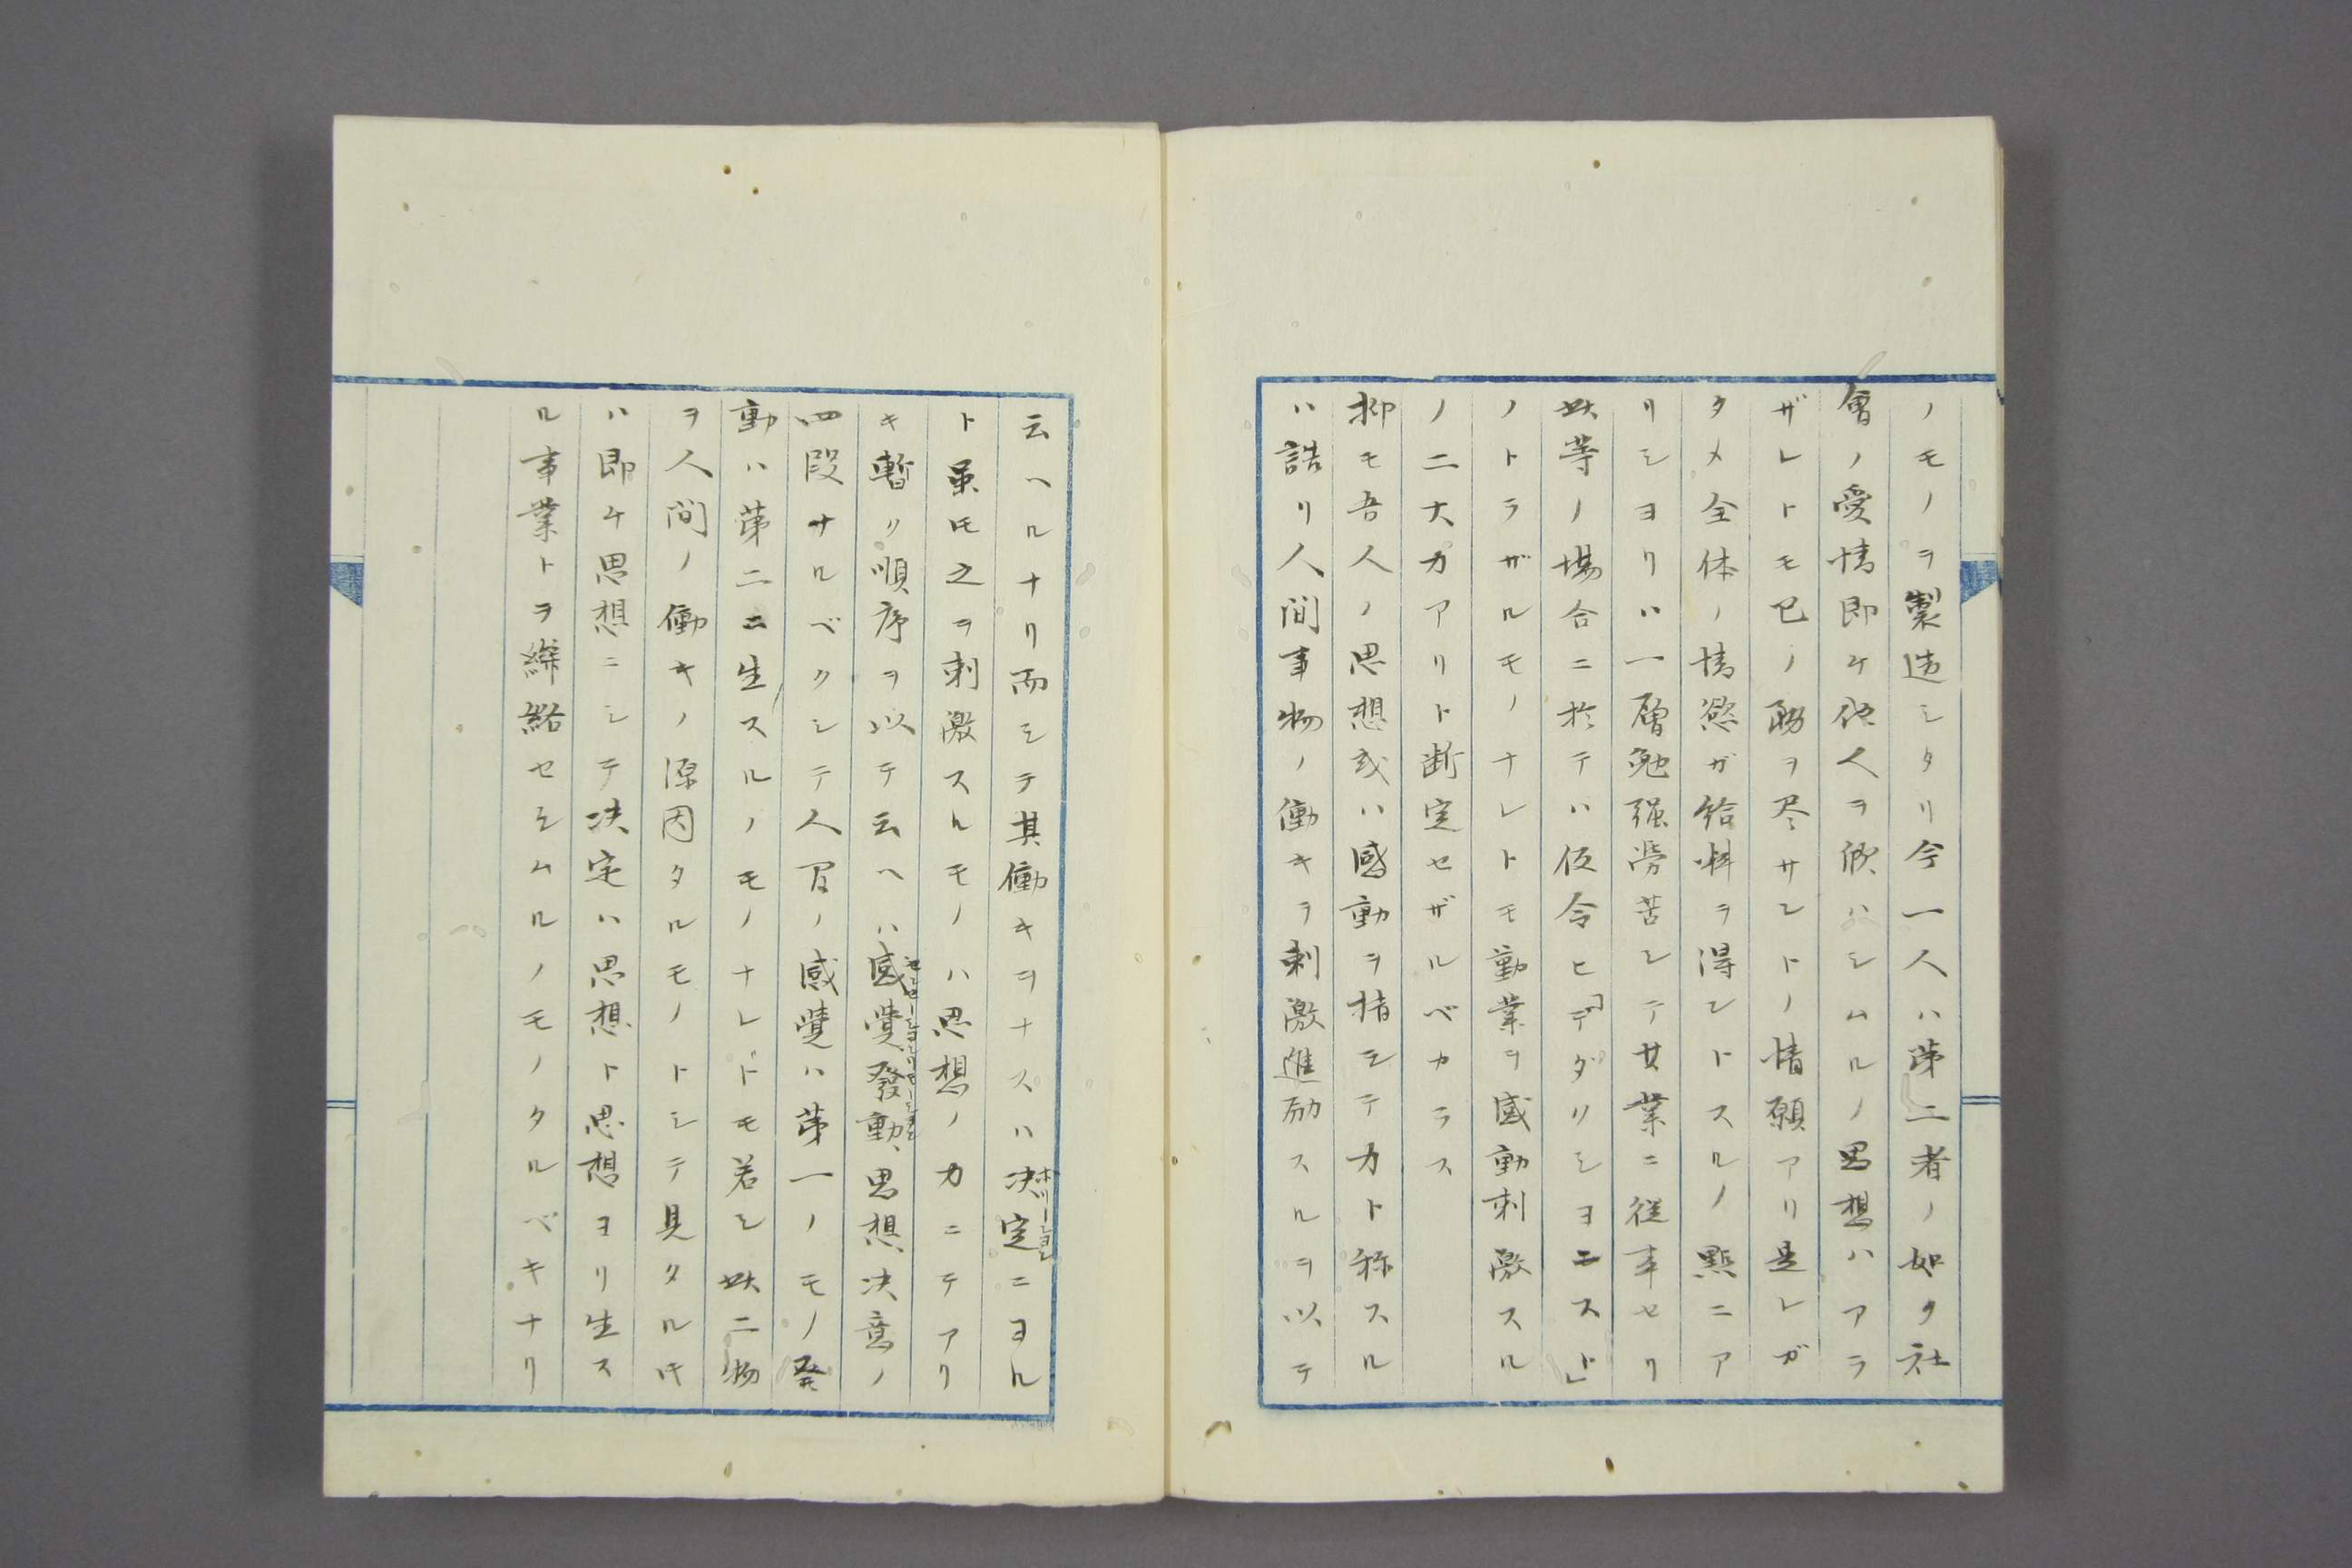 ノモノヲ製造シタリ今一人ハ第二者ノ如ク社
會ノ愛情即ケ他人ヲ欣ハシムルノ思想ハアラ
ザレトモ己ノ務ヲ尽サントノ情願アリ是レガ
タメ全体ノ情慾ガ給料ヲ得ントスルノ點ニア
リシヨリハ一層勉强労苦シテ其業ニ従事セリ
此等ノ場合ニ於テハ仮令ヒ「デダリシヨニスト」
ノトラザルモノナレトモ勤業ヲ感動刺激スル
ノ二大力アリト断定セザルベカラス
抑モ吾人ノ思想或ハ感動ヲ指シテ力ト称スル
ハ誥リ人間事物ノ働キヲ刺激進励スルヲ以テ
云ヘルナリ而シテ其働キヲナスハ决定ニヨル
ト虽𪜈之ヲ刺激スルモノハ思想ノ力ニテアリ
キ暫ク順序ヲ以テ云ヘハ感覺、發動、思想、决意ノ
四段ナルベクシテ人間ノ感覺ハ第一ノモノ發
動ハ第二ニ生スルノモノナレドモ若シ此二物
ヲ人間ノ働キノ源因タルモノトシテ見タル时
ハ即ケ思想ニシテ决定ハ思想ト思想ヨリ生ス
ル事業トヲ繰絡セシムルノモノタルベキナリ